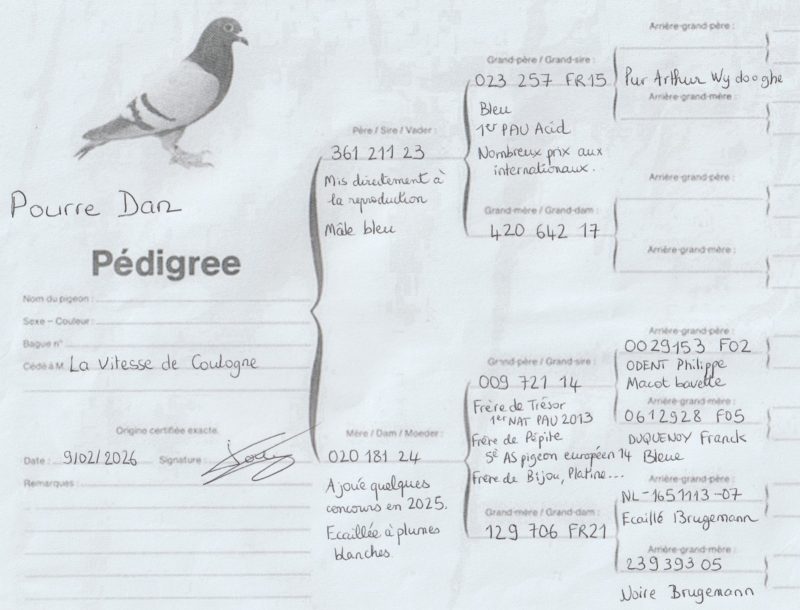 Pourre Dan
Pédigree
Nom du pigeon :
Sexe – Couleur :
Bague n° :
Cédé à M. La Vitesse de Coulogne
Origine certifiée exacte.
Date : 9/02/2026 Signature :
Remarques :
Père / Sire / Vader :
361 211 23
Mis directement à
la reproduction
Mâle bleu
Mère / Dam / Moeder :
020 181 24
A joué quelques
concours en 2025.
Ecaillée à plumes
blanches.
Grand-père / Grand-sire :
023 257 FR15
Bleu
1er PAU Acid
Nombreux prix aux
internationaux.
Grand-mère / Grand-dam :
420 642 17
Grand-père / Grand-sire :
009 721 14
Frère de Trésor
1er NAT PAU 2013
Frère de Pépite
5è AS pigeon européen 14
Frère de Bijou, Platine...
Grand-mère / Grand-dam :
129 706 FR21
Arrière-grand-père :
Pur Arthur Wydooghe
Arrière-grand-mère :
Arrière-grand-père :
Arrière-grand-mère :
Arrière-grand-père :
0029153 F02
ODENT Philippe
Macot bavette
Arrière-grand-mère :
0612928 F05
DUQUENOY Franck
Bleue
Arrière-grand-père :
NL-1651113-07
Ecaillé Brugemann
Arrière-grand-mère :
2393930 5
Noire Brugemann